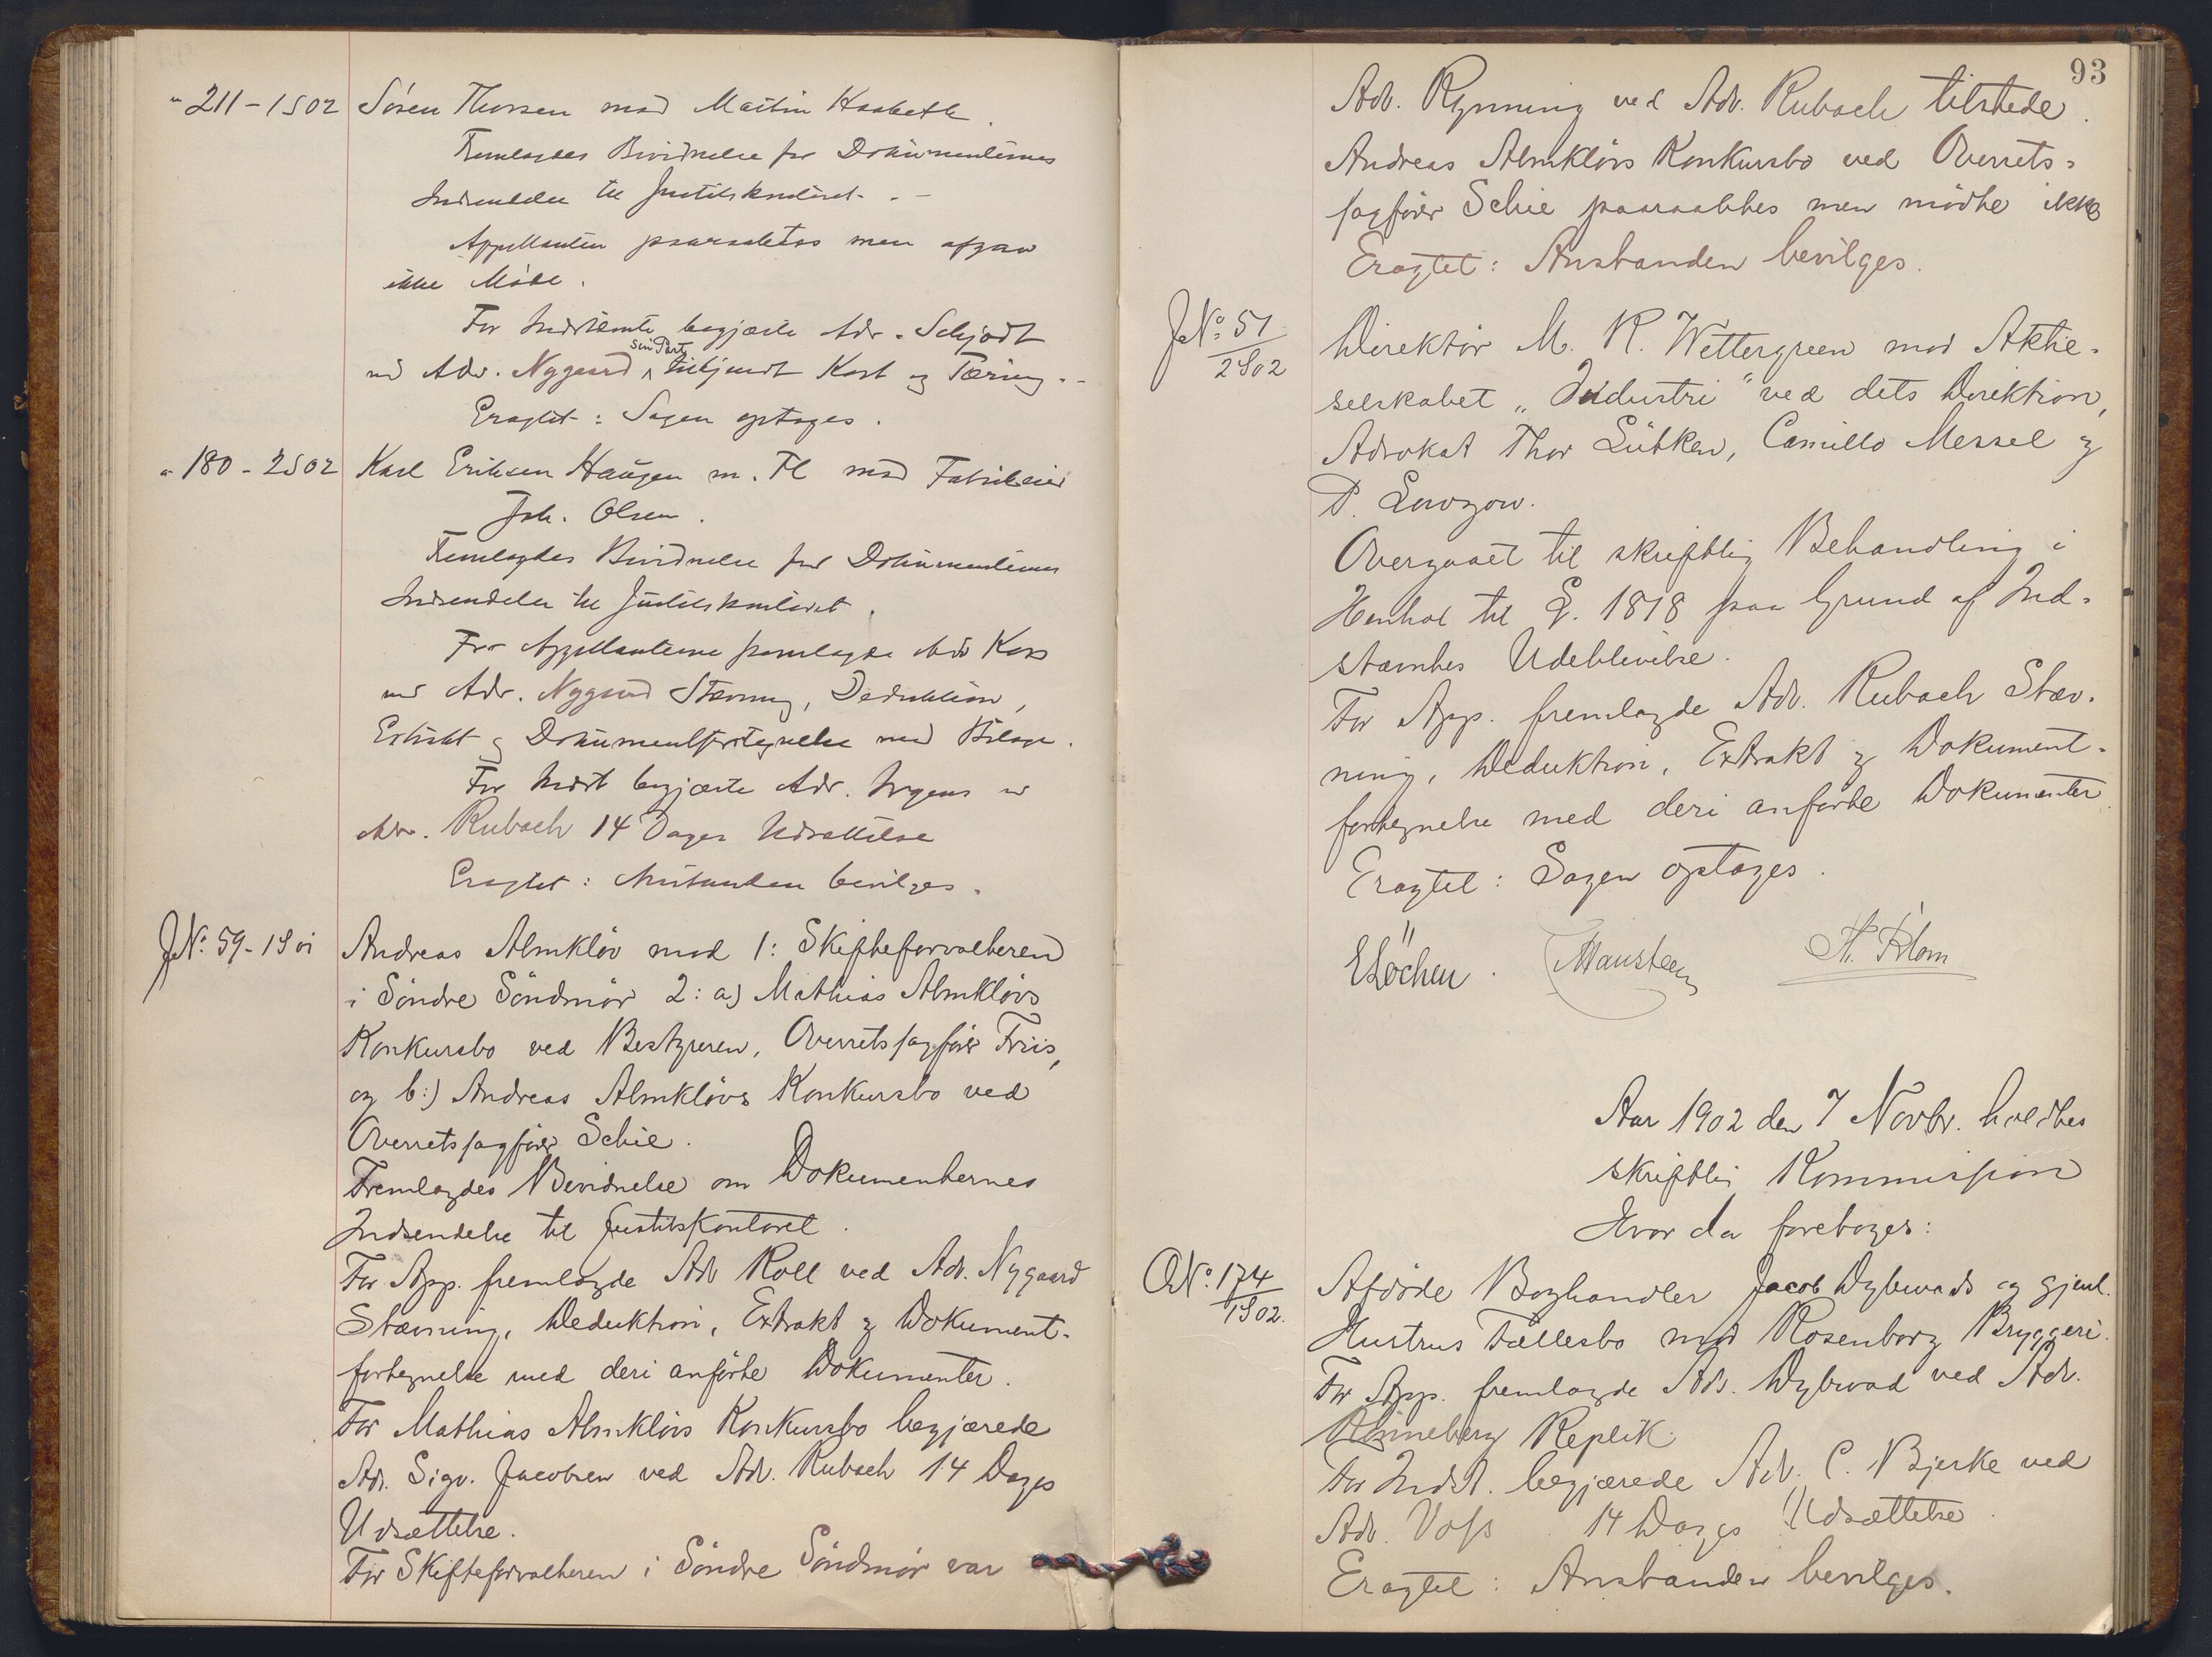 " 211 - 1 S 02 Sören Thorsen mod Martin Haabeth.
Fremlagdes Bevidnelse for Dokumenternes
Indsendelse til Justitskontoret. -
Appellanten paaraabtes men afgav
ikke Möde.
For Indstevnte begjærte Adv. Schjödt
ved Adv. Nygaard sin Part tilkjendt Kost og Tæring. -
Eragtet: Sagen optages.
" 180 - 2 S 02 Karl Eriksen Haugen m. Fl mod Fabrikeier
Joh. Olsen.
Fremlagdes Bevidnelse for Dokumenternes
Indsendelse til Justitskontoret.
For Appellanterne fremlagde Adv
ved Adv. Nygaard Stævning, Deduktion,
Extrakt og Dokumentfortegnelse med Bilage.
For Indst begjærte Adv. ved
Adv. Rubach 14 Dages Udsættelse
Eragtet: Anstanden bevilges.
J№: 59 - 1 S 01 Andreas Almklöv mod 1: Skifteforvalteren
i Söndre Söndmör 2: a) Mathias Almklövs
Konkursbo ved Bestyreren, Overretssagförer Friis,
og b:) Andreas Almklövs Konkursbo ved
Overretssagförer Schie.
Fremlagdes Bevidnelse om Dokumenternes
Indsendelse til Justitskontoret.
For App. fremlagde Adv Roll ved Adv. Nygaard
Stævning, Deduktion, Extrakt & Dokument-
fortegnelse med deri anförte Dokumenter.
For Mathias Almklövs Konkursbo begjærede
Adv. Sigv. Jacobsen ved Adv. Rubach 14 Dages
Udsættelse.
For Skifteforvalteren i Söndre Söndmör var
93
Adv. Rynning ved Adv. Rubach tilstede.
Andreas Almklövs Konkursbo ved Overrets-
sagförer Schie paaraabtes men mödte ikke
Eragtet: Anstanden bevilges.
J№: 51 / 2 S 02 Direktör M. R. Wettergreen mod Aktie-
selskabet "Industri" ved dets Direktion,
Advokat Thor Lütken, Camillo Messel &
P. Lowzow.
Overgaaet til skriftlig Behandling i
Henhol til L. 1818 paa Grund af Ind-
stæmtes Udeblivelse.
For App. fremlagde Adv. Rubach Stæv-
ning, Deduktion, Extrakt & Dokument-
fortegnelse med deri anförte Dokumenter.
Eragtet: Sagen optages.
E Löchen. Hansteen H. Blom
Aar 1902 den 7 Novbr. holdtes
skriftlig Kommission
Hvor da foretoges:
O№: 174 / 1 S 02. Afdöde Boghandler Jacob Dybwads og gjenl.
Hustrus Fællesbo mod Rosenborg Bryggeri.
For App. fremlagde Adv. Dybwad ved Adv.
Rönneberg Replik.
For Indst. begjærede Adv. C. Bjerke ved
Adv. Voss 14 Dages Udsættelse.
Eragtet: Anstanden bevilges.